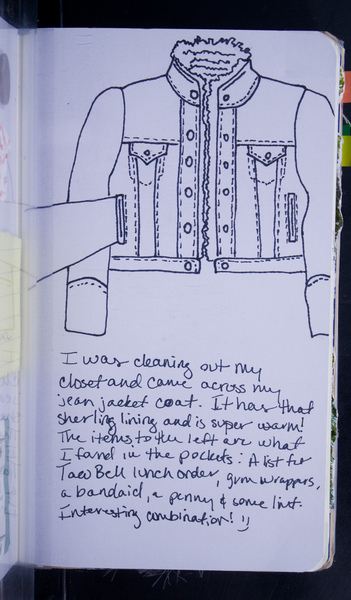 I was cleaning out my
closet and came across my
jean jacket coat. It has that
sherling lining and is super warm!
The items to the left are what
I found in the pockets: A list for
Taco Bell lunch order, gum wrappers,
a bandaid, a penny & some lint.
Interesting combination! :)